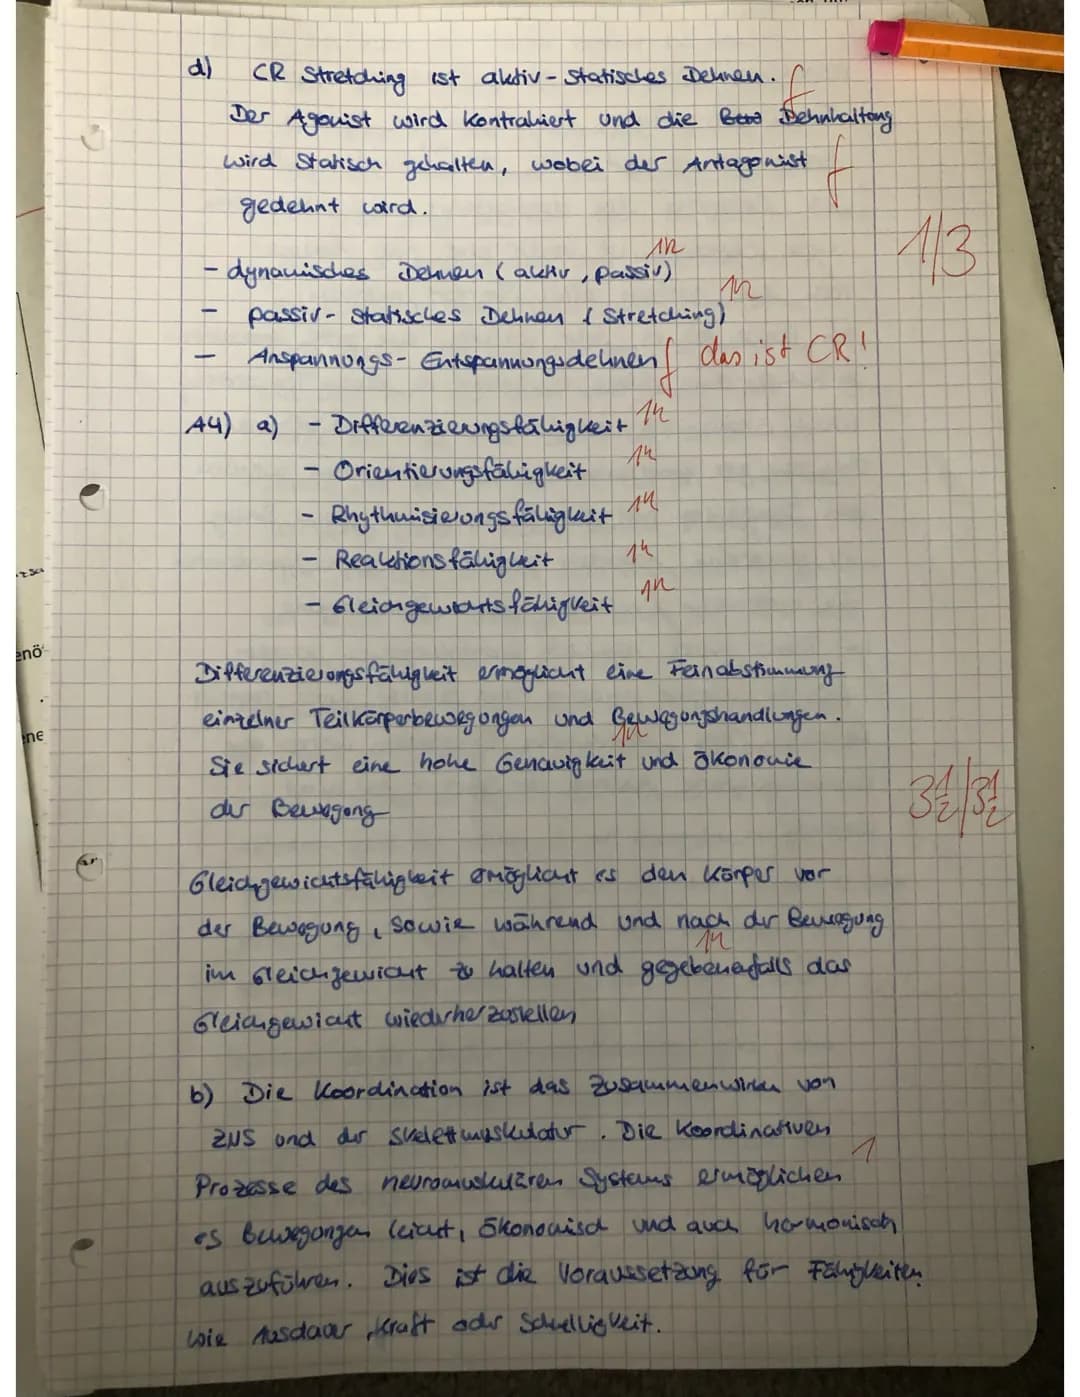 d) CR Stretching ist aktiv-statisches Dehnen. f
Der Agonist wird kontrahiert und die Dehnhaltung
wird statisch gehalten, wobei der Antagonist f
gedehnt wird.
1/3
- dynamisches Dehnen (aktiv, passiv) 1/2
- passiv-statisches Dehnen (Stretching) 1/2
- Anspannungs-Entspannungsdehnen f das ist CR!
A4) a) - Differenzierungsfähigkeit 1/2
- Orientierungsfähigkeit 1/2
- Rhythmisierungsfähigkeit 1/2
- Reaktionsfähigkeit 1/2
- Gleichgewichtsfähigkeit 1/2
Differenzierungsfähigkeit ermöglicht eine Feinabstimmung
einzelner Teilkörperbewegungen und Bewegungshandlungen.
1/2
Sie sichert eine hohe Genauigkeit und Ökonomie
der Bewegung
3 1/2 / 3 1/2
Gleichgewichtsfähigkeit ermöglicht es den Körper vor
der Bewegung, sowie während und nach der Bewegung
1/2
im Gleichgewicht zu halten und gegebenenfalls das
Gleichgewicht wiederherzustellen
b) Die Koordination ist das Zusammenwirken von
ZNS und der Skelettmuskulatur. Die Koordinativen
1
Prozesse des neuromuskulären Systems ermöglichen
es Bewegungen leicht, ökonomisch und auch harmonisch
auszuführen. Dies ist die Voraussetzung für Fähigkeiten
wie Ausdauer, Kraft oder Schnelligkeit.
enö
ene